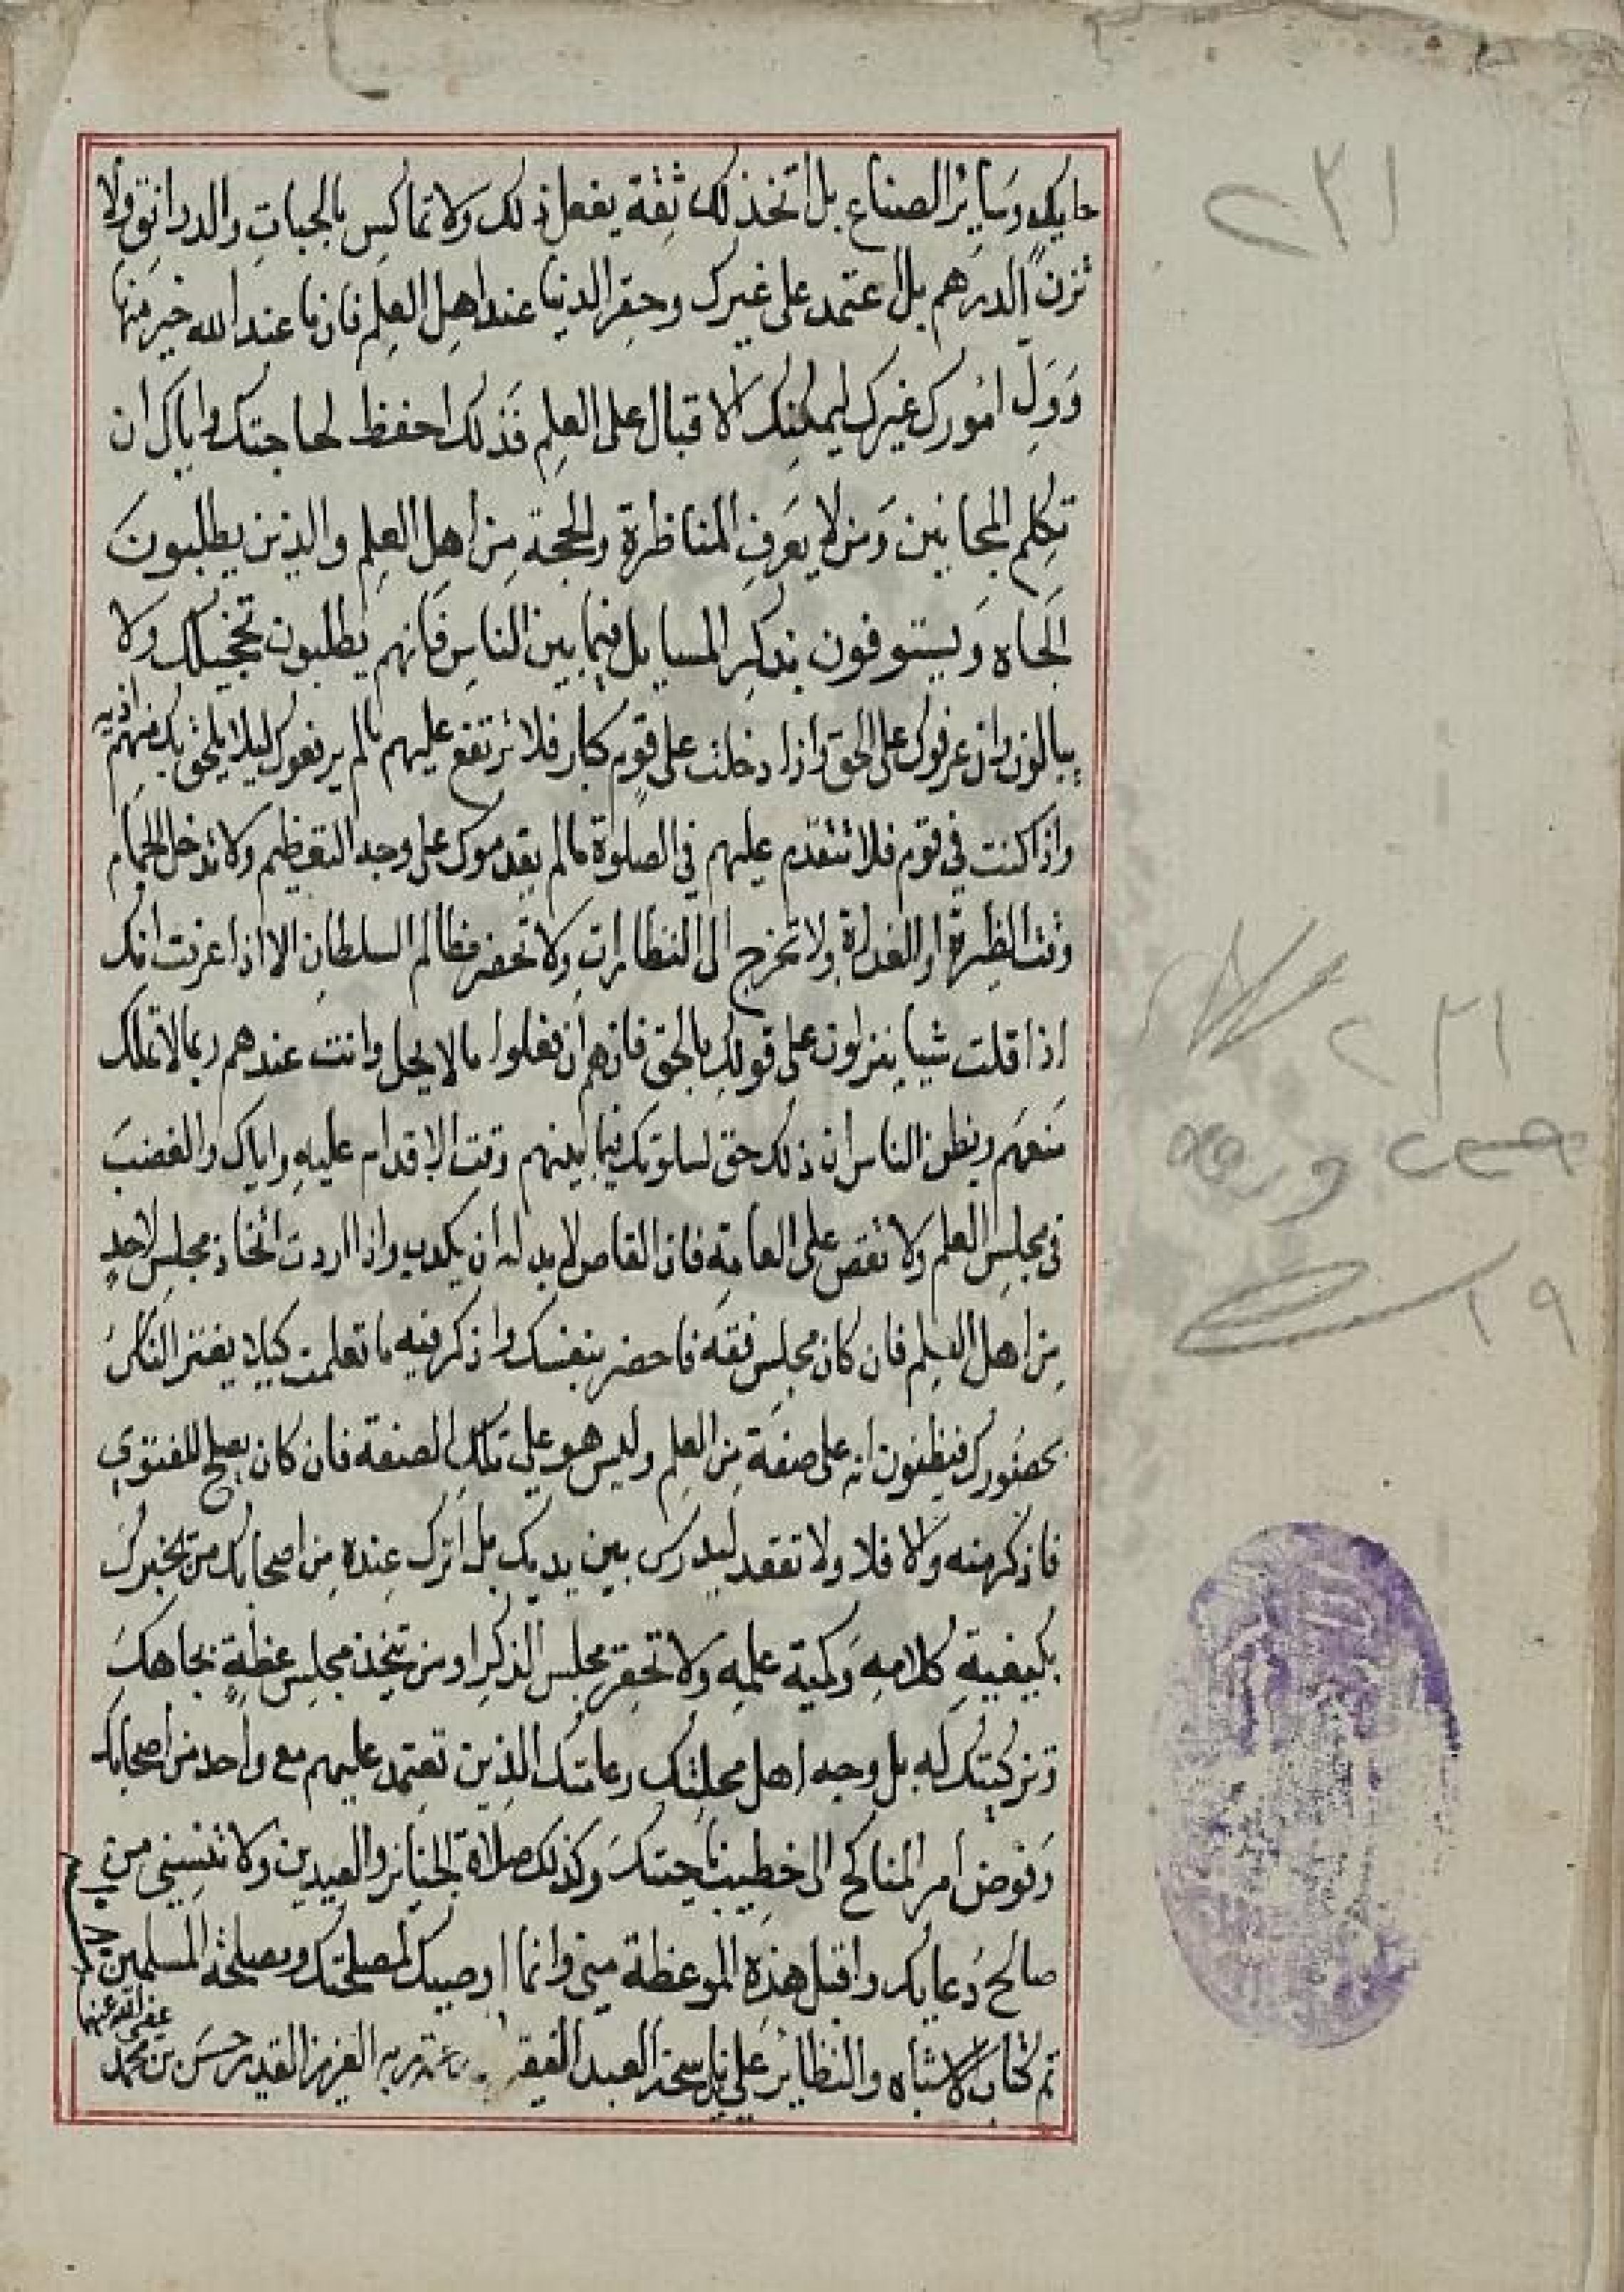 حايك وساير الصناع بل اتخذ لك ثقة يفعل ذلك ولا تماكس بالحبات والدوانق ولا
تزن الدرهم بل اعتمد على غيرك وحقر الدنيا عند اهل العلم فان ما عند الله خير منها
وول امورك غيرك ليمكنك الاقبال على العلم فذلك احفظ لحاجتك واياك ان
تكلم المجانين ومن لا يعرف المناظرة والحجة من اهل العلم والذين يطلبون
الجاه ويستوفون بذكر المسايل فيما بين الناس فانهم يطلبون تخجيلك ولا
يبالون وان عرفوك على الحق واذا دخلت على قوم كبار فلا ترتفع عليهم مالم يرفعوك ليلا يلحق بك منهم اذية
واذا كنت في قوم فلا تتقدم عليهم في الصلوة مالم يقدموك على وجه التعظيم ولا تدخل الحمام
وقت الظهيرة او الغداة ولا تخرج الى النظارات ولا تحضر مظالم السلطان الا اذا عرفت انك
اذا قلت شيا ينزلون على قولك بالحق فانهم ان فعلوا مالا يحل وانت عندهم ربما لا تملك
منعهم ويظن الناس ان ذلك حق لسكوتك فيما بينهم وقت الاقدام عليه واياك والغضب
في مجلس العلم ولا تقص على العامة فان القاص لا بد له ان يكذب واذا اردت اتخاذ مجلس لاحد
من اهل العلم فان كان مجلس فقه فاحضر بنفسك واذكر فيه ما تعلمت كيلا يغتر الناس
بحضورك فيظنون انه على صفة من العلم وليس هو على تلك الصفة فان كان يصلح للفتوى
فاذكر منه والا فلا ولا تقعد ليدرس بين يديك بل اترك عنده من اصحابك من يخبرك
بكيفية كلامه وكمية علمه ولا تحقر مجلس الذكر او من يتخذ مجلس عظة بجاهك
وتزكيتك له بل وجه اهل محلتك وعامتك الذين تعتمد عليهم مع واحد من اصحابك
وفوض امر المناكح الى خطيب ناحيتك وكذلك صلاة الجنايز والعيدين ولا تنسني من
صالح دعايك واقبل هذه الموعظة مني وانما اوصيك لمصلحتك ومصلحة المسلمين
تم كتاب الاشباه والنظاير على يد العبد الفقير العزيز القدير حسن بن محمد
عفى الله عنهما
٢٣١
٢٣١
ورقه
١٩